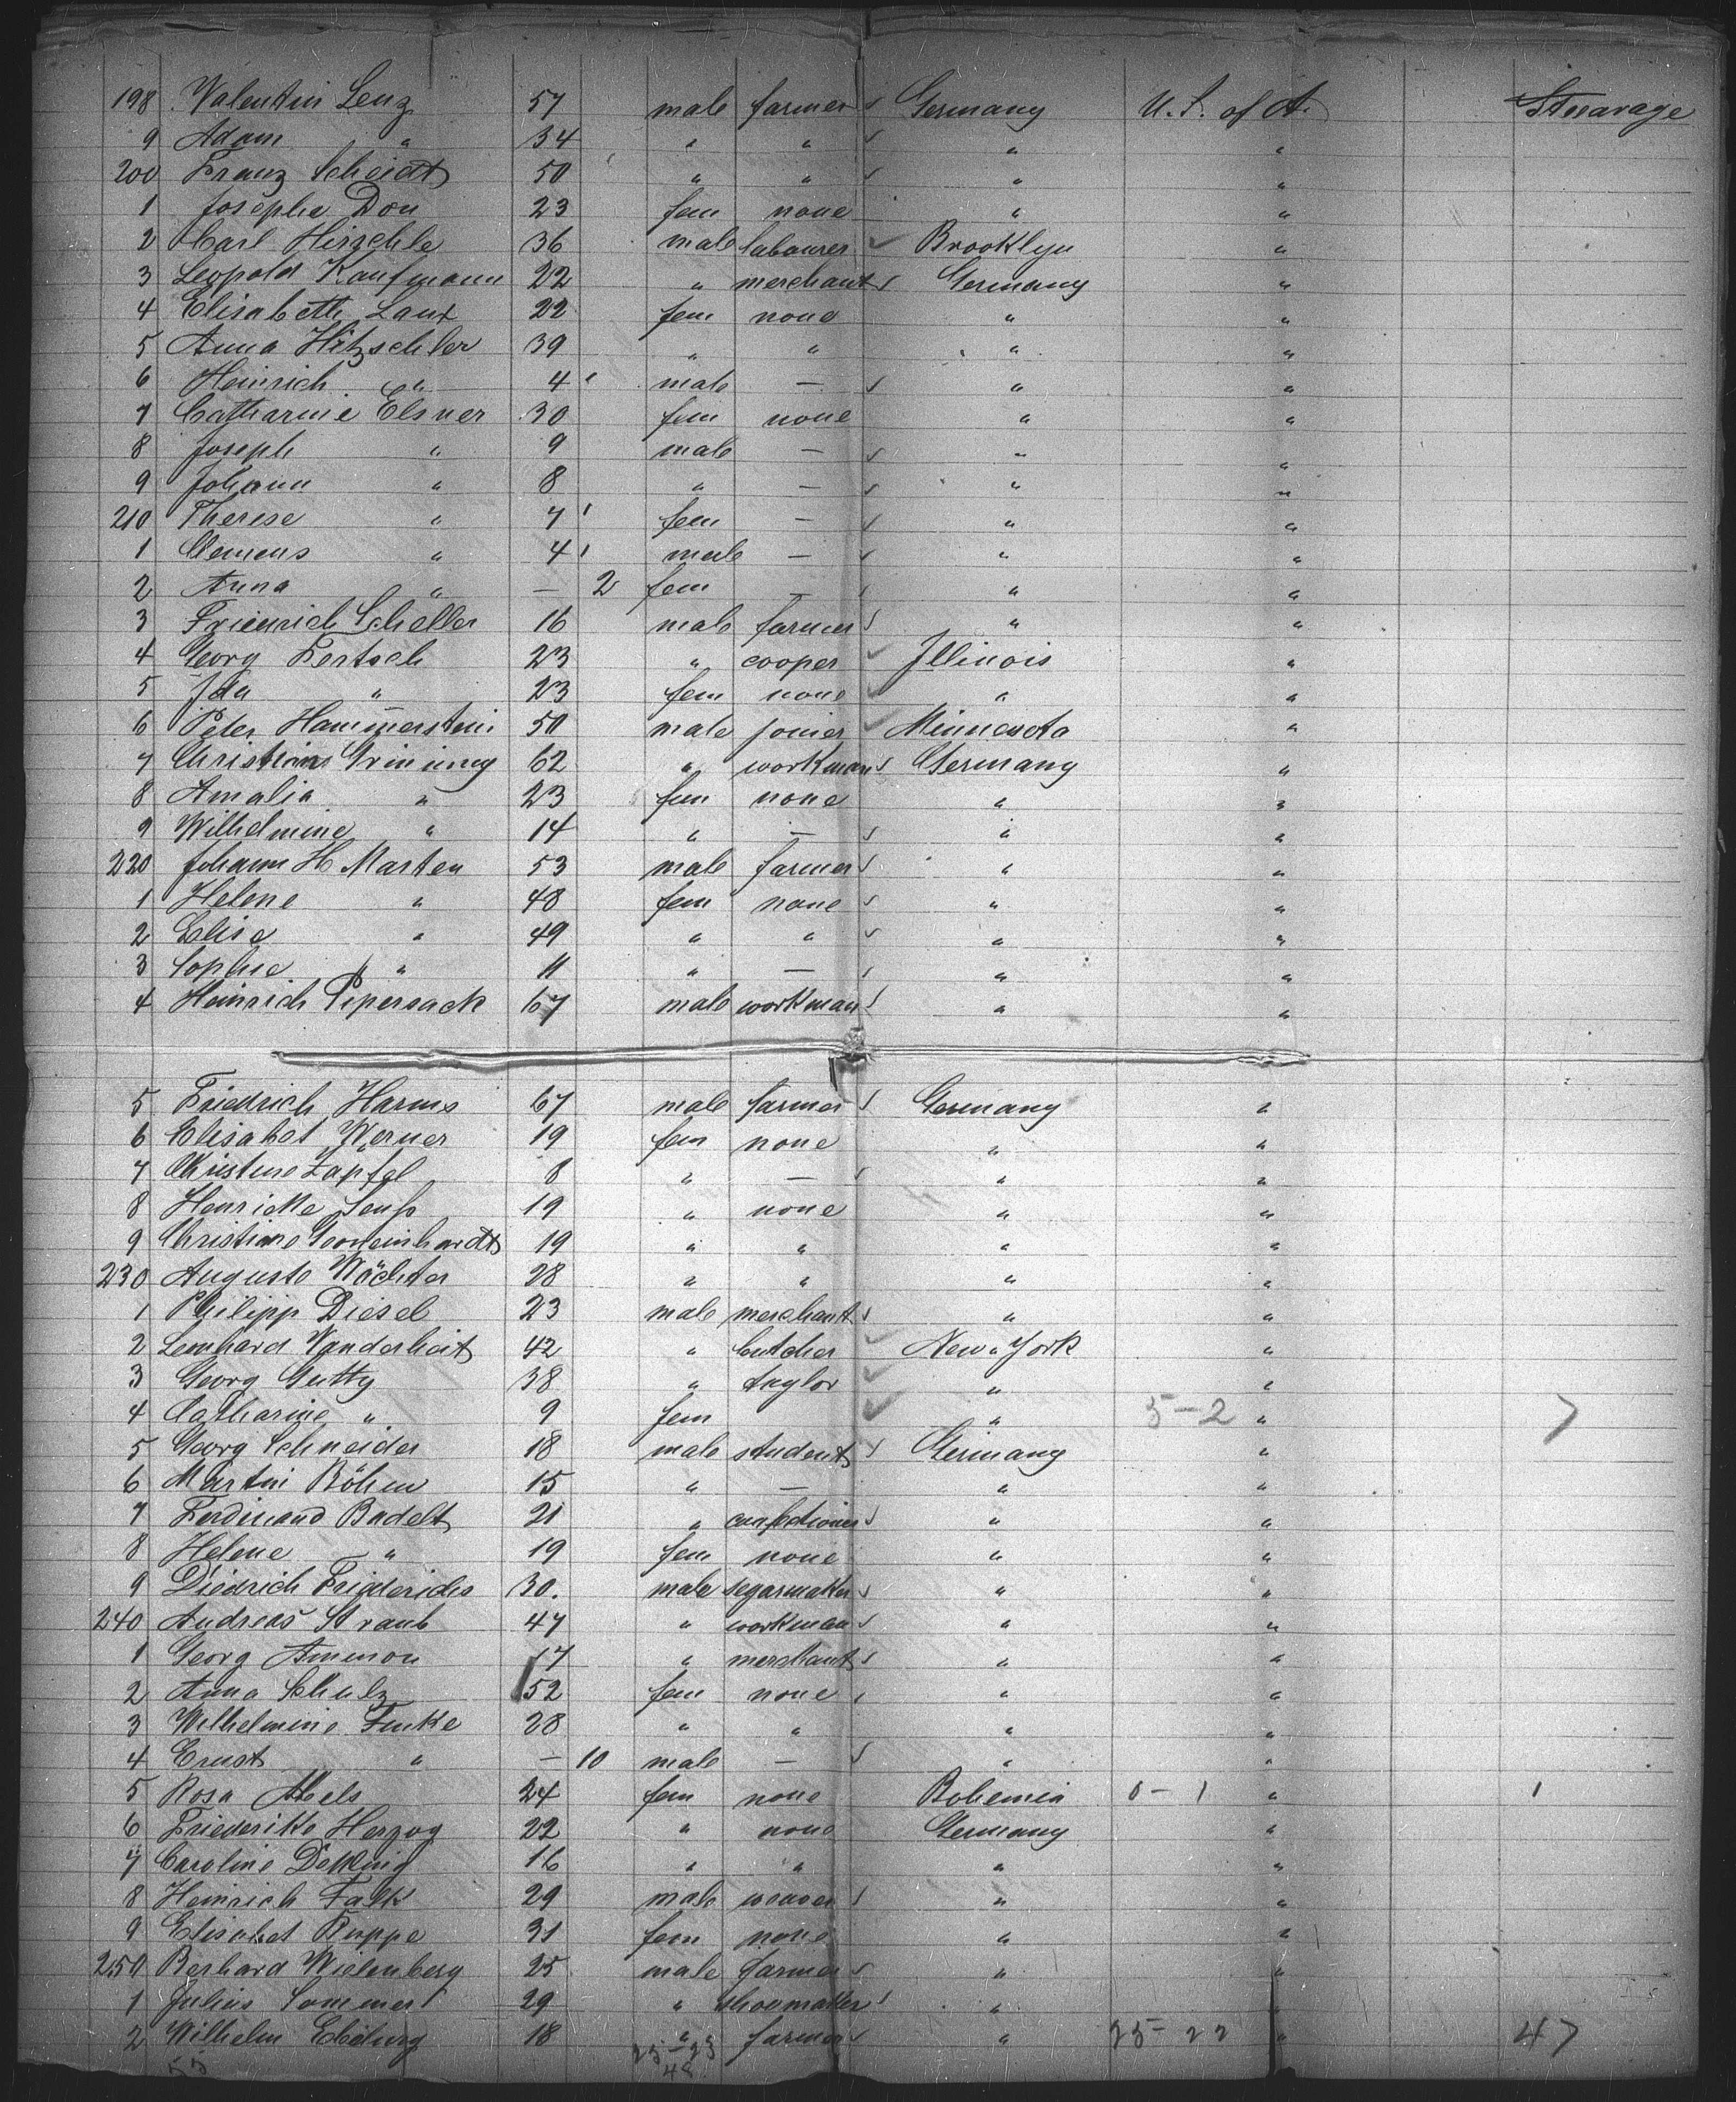 198 Valentin Lenz 57 male farmer Germany U. S. of A. Steearage
9 Adam " 34 " " " "
200 Franz Scheidt 50 " " " "
1 Josepha Don 23 fem none " "
2 Carl Hirschle 36 male labourer Brooklyn "
3 Leopold Kaufmann 22 " merchant Germany "
4 Elisabeth Laux 22 fem none " "
5 Anna Hitzschler 39 " " " "
6 Heinrich " 4 male — " "
7 Catharine Elsner 30 fem none " "
8 Joseph " 9 male — " "
9 Johann " 8 " — " "
210 Therese " 7 fem — " "
1 Clemens " 4 male — " "
2 Anna " — 2 fem — " "
3 Friedrich Scheller 16 male farmer " "
4 Georg Fertsch 23 " cooper Illinois "
5 Ida " 23 fem none " "
6 Peter Hammerstein 50 male joiner Minnesota "
7 Christian 62 " workman Germany "
8 Amalia " 23 fem none " "
9 Wilhelmine " 14 " — " "
220 Johann H Marten 53 male farmer " "
1 Helene " 48 fem none " "
2 Elise " 49 " " " "
3 Sophie " 11 " — " "
4 Heinrich Pipersack 67 male workman " "
5 Friedrich Harms 67 male farmer Germany "
6 Elisabet Werner 19 fem none " "
7 Christine Zapfel 8 " — " "
8 Henriette 19 " none " "
9 Christiane Gemeinhardt 19 " " " "
230 Auguste Wächter 28 " " " "
1 Philipp Diesel 23 male merchant " "
2 Leonhard Wanderheit 42 " butcher New-York "
3 Georg Gutty 38 " taylor " "
4 Catharine " 9 fem " 5-2 " 7
5 Georg Schneider 18 male student Germany "
6 Martin Böhm 15 " — " "
7 Ferdinand Badelt 21 " confectioner " "
8 Helene " 19 fem none " "
9 Diedrich Friederichs 30. male segarmaker " "
240 Andreas Straub 47 " workman " "
1 Georg Ammon 17 " merchant " "
2 Anna Schulz 52 fem none " "
3 Wilhelmine Finke 28 " " " "
4 Ernst " — 10 male — " "
5 Rosa Abels 24 fem none Bohemia 0-1 " 1
6 Friederike Herzog 22 " none Germany "
7 Caroline 16 " " " "
8 Heinrich Falk 29 male weaver " "
9 Elisabet Ruppe 31 fem none " "
250 Berhard Wielenberg 25 male farmer " "
1 Julius Sommer 29 " shoemaker " "
2 Wilhelm 18 " farmer " 25-22 " 47
55 25-23
48